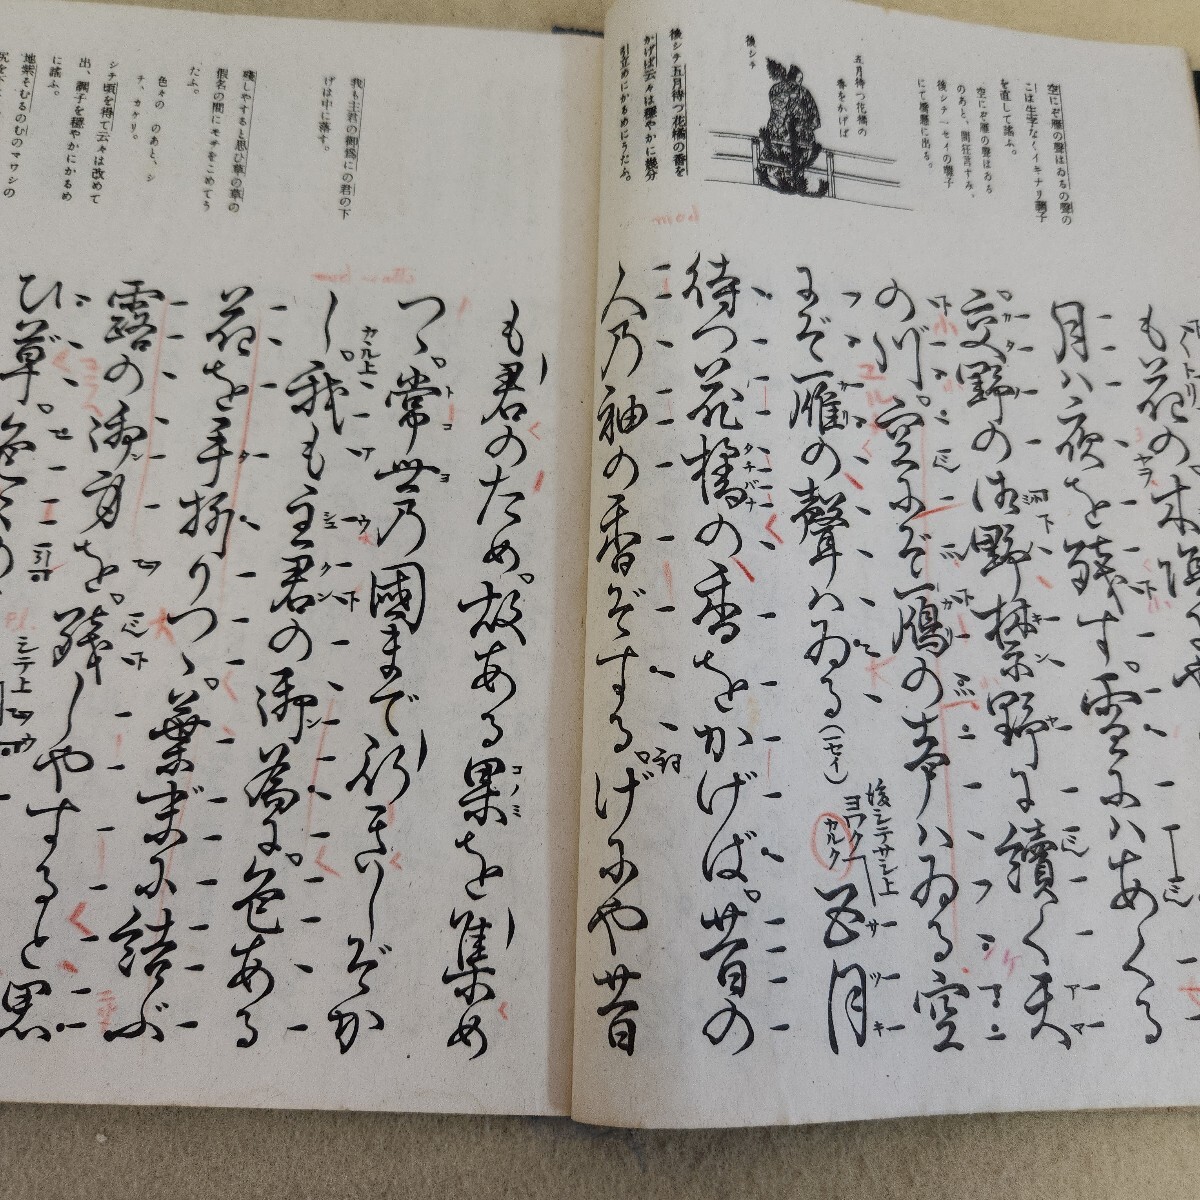 空にぞ雁の聲はゐるの聲の
こは生字なくイキナリ調子
を直して謠ふ。
空にぞ雁の聲はゐる
のあと、間狂言すみ、
後シテ一セイの囃子
にて橋懸に出る。
五月待つ花橘の
香をかげば
後シテ
後シテ五月待つ花橘の香を
かげば云々は穩やかに幾分
引立めにかるめにうたふ。
我も主君の御爲にの君の下
げは中に落す。
殘しやすると思ひ草の草の
假名の間にモチをこめてう
たふ。
色々の のあと、シ
テ、カケリ。
シテ頃を得て云々は改めて
出、調子を穩やかにかるめ
に謠ふ。
地紫そむるのむのマワシの
も花の木
月ハ夜を殘す。雪にハあくる
交野の御野禁野に續く天
の川。空にぞ雁の聲ハゐる空
にぞ雁の聲ハゐる(一セイ)
後シテサシ上
ヨワク
カルク
五月
待つ花橘の香をかげば。昔の
人乃袖の香ぞする。げにや昔
も君のため。故ある果を集め
つゝ。常世乃國まで行きしぞか
し。我も主君の御爲に。色ある
花を手折りつゝ。葉末に結ぶ
露の御身を。殘しやすると思
ひ草。色々の
シテ上